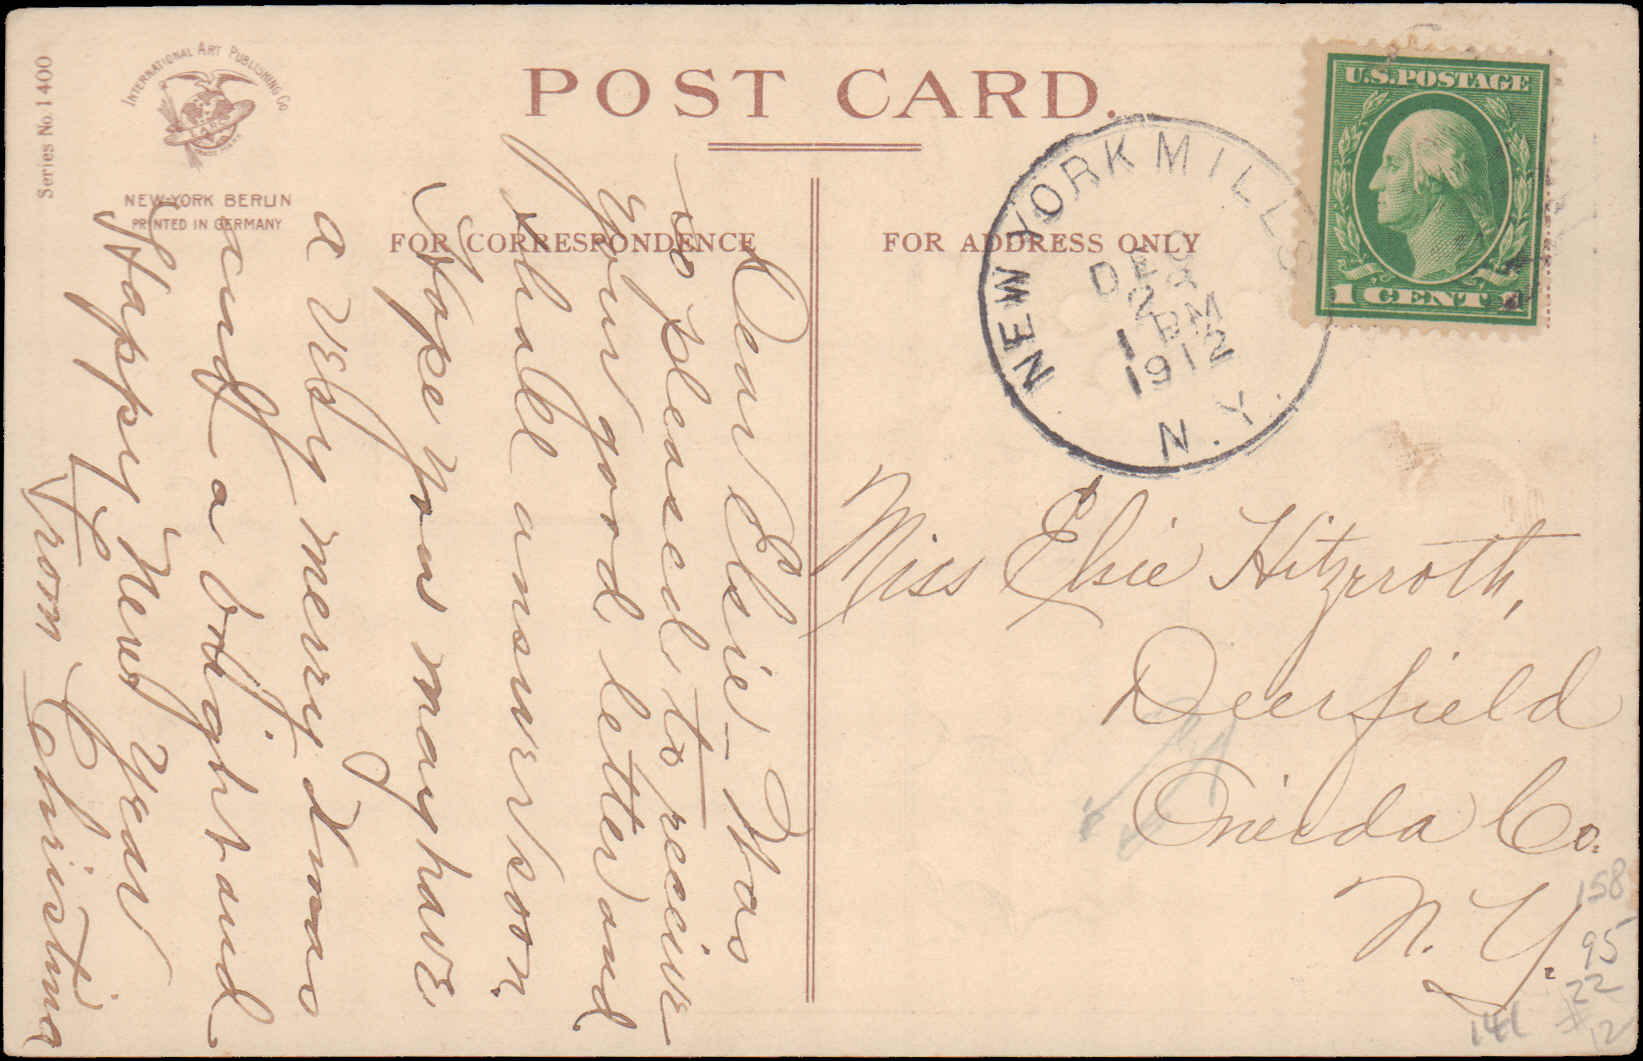 Series No. 1400
INTERNATIONAL ART PUBLISHING CO
NEW-YORK BERLIN
PRINTED IN GERMANY
POST CARD.
FOR CORRESPONDENCE
FOR ADDRESS ONLY
U.S.POSTAGE
1 CENT 1
NEW YORK MILLS
DEC
2
1 PM
1912
N.Y.
Dear Elsie - Was
so pleased to receive
your good letter and
shall answer soon.
Hope you may have
a very merry Xmas
and a bright and
Happy New Year
From Christina
Miss Elsie Hitzrroth,
Deerfield
Oneida Co.
N.Y.
158
95
22
141
12